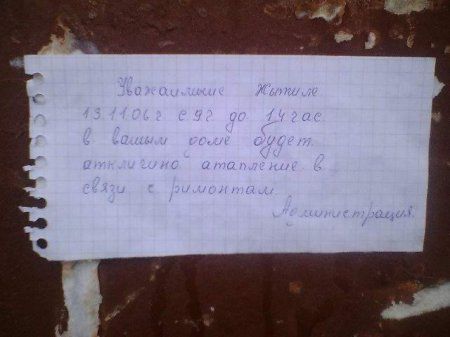 Уважаимые Жытиле
13.11.06г с 9г до 14 час.
в вашым доме будет
атклигино атапление в
связи с римонтам.
Администрация.